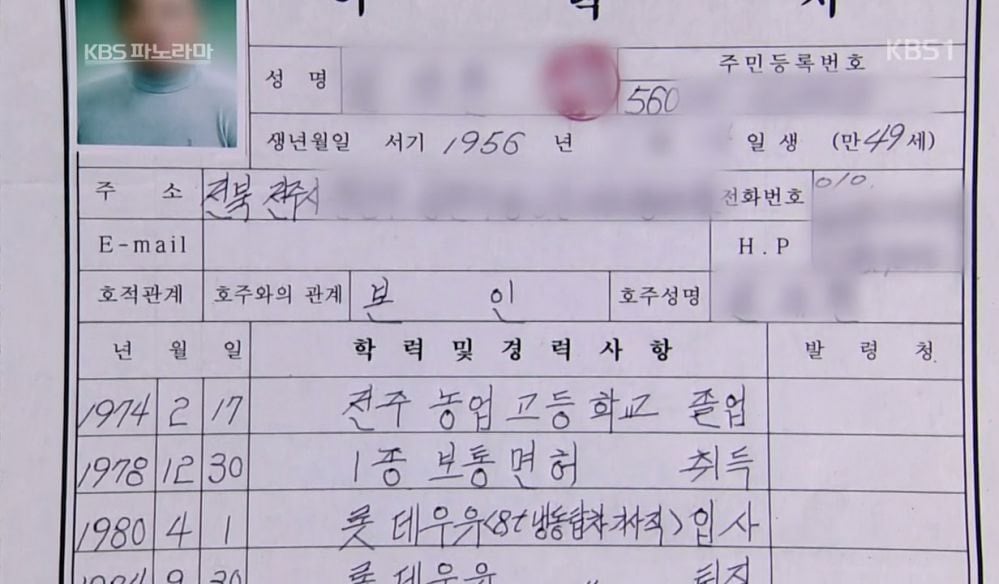 이 력 서
KBS 파노라마
KBS1
성 명
주민등록번호
560
생년월일 서기 1956 년 일 생 (만 49 세)
주 소 전북 전주시 전화번호 010.
E-mail H.P
호적관계 호주와의 관계 본 인 호주성명
년 월 일 학 력 및 경 력 사 항 발 령 청
1974 2 17 전주 농업 고등 학교 졸업
1978 12 30 1종 보통 면허 취득
1980 4 1 롯데우유(8t 냉동탑차 기사직) 입사
1984 9 30 롯데우유 〃 퇴직